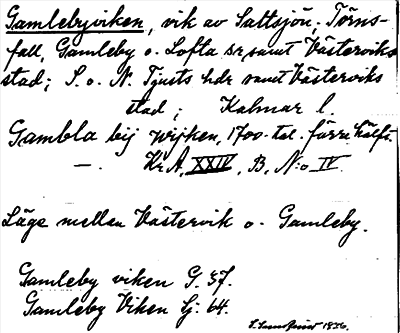 Gamlebyviken, vik av Saltsjön; Törns-
fall, Gamleby o. Lofta sr samt Västerviks
stad; S. o. N. Tjusts hdr samt Västerviks
stad; Kalmar l.
Gambla bij wijken, 1700-tal. förra hälft.
—. Kr. A. XXIV, B, N:o IV.
Läge mellan Västervik o. Gamleby.
Gamleby viken G. 37.
Gamleby Viken Lj. 64.
1936.